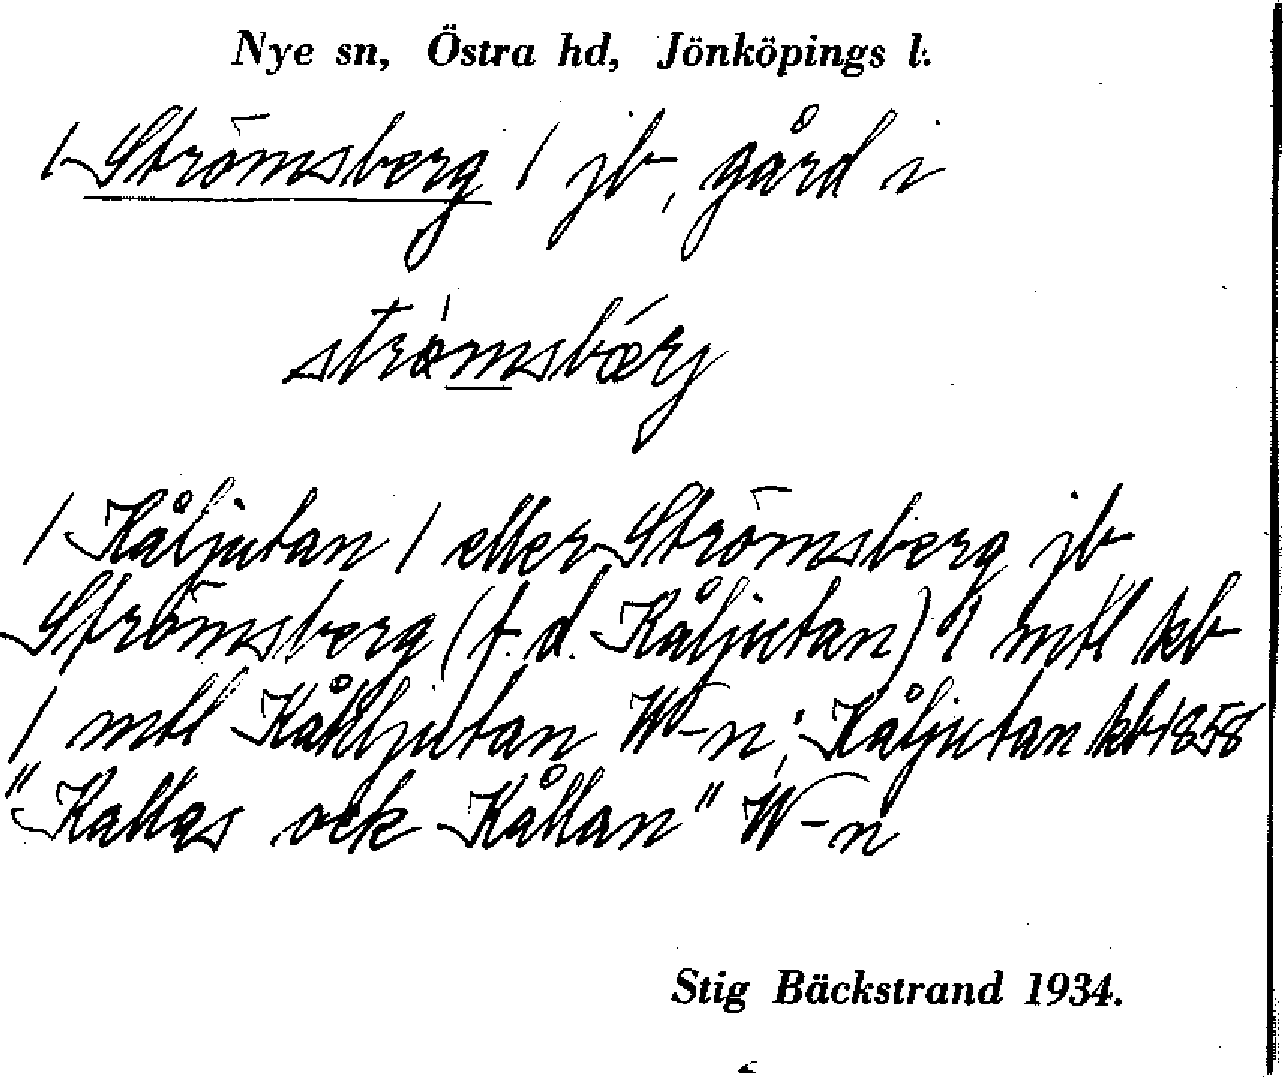 Nye sn, Östra hd, Jönköpings l.
1 Strömsberg 1 jb, gård i
strömsbærj
1 Kåljutan 1 eller Strömsberg jb
Strömsberg (f.d. Kåljutan) 1 mtl kb
1 mtl Kålljutan W-n; Kåljutan kb 1858
"Kallas ock Kållan" W-n
Stig Bäckstrand 1934.